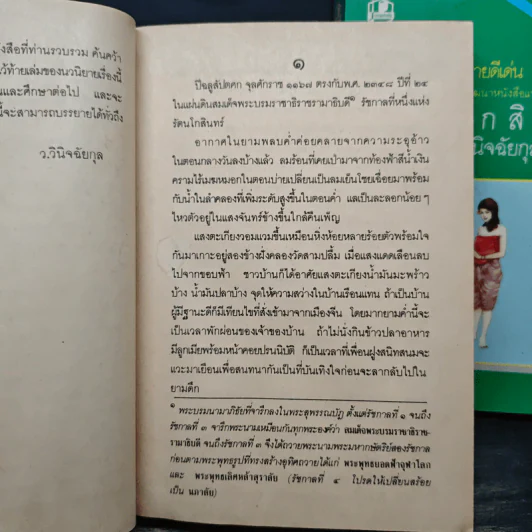 งสือที่ท่านรวบรวม ค้นคว้า
ว้ท้ายเล่มของนวนิยายเรื่องนี้
และศึกษาต่อไป และจะ
นี้จะสามารถบรรยายได้ทั่วถึง
ว.วินิจฉัยกุล
๑
ปีฉลูสัปตศก จุลศักราช ๑๑๖๗ ตรงกับพ.ศ. ๒๓๔๘ ปีที่ ๒๔
ในแผ่นดินสมเด็จพระบรมราชาธิราชรามาธิบดี๑ รัชกาลที่หนึ่งแห่ง
รัตนโกสินทร์
อากาศในยามพลบค่ำค่อยคลายจากความระอุอ้าว
ในตอนกลางวันลงบ้างแล้ว ลมร้อนที่เคยเป่ามาจากท้องฟ้าสีน้ำเงิน
ครามไร้เมฆหมอกในตอนบ่ายเปลี่ยนเป็นลมเย็นโชยเฉื่อยมาพร้อม
กับน้ำในลำคลองที่เพิ่มระดับสูงขึ้นในตอนค่ำ แลเป็นละลอกน้อย ๆ
ไหวตัวอยู่ในแสงจันทร์ข้างขึ้นใกล้คืนเพ็ญ
แสงตะเกียงวอมแวมขึ้นเหมือนหิ่งห้อยหลายร้อยตัวพร้อมใจ
กันมาเกาะอยู่สองข้างฝั่งคลองวัดสามปลื้ม เมื่อแสงแดดเลือนลบ
ไปจากขอบฟ้า ชาวบ้านก็ได้อาศัยแสงตะเกียงน้ำมันมะพร้าว
บ้าง น้ำมันปลาบ้าง จุดให้ความสว่างในบ้านเรือนแทน ถ้าเป็นบ้าน
ผู้มีฐานะดีก็มีเทียนไขที่สั่งเข้ามาจากเมืองจีน โดยมากยามค่ำนี้จะ
เป็นเวลาพักผ่อนของเจ้าของบ้าน ถ้าไม่นั่งกินข้าวปลาอาหาร
มีลูกเมียพร้อมหน้าคอยปรนนิบัติ ก็เป็นเวลาที่เพื่อนฝูงสนิทสนมจะ
แวะมาเยือนเพื่อสนทนากันเป็นที่บันเทิงใจก่อนจะลากลับไปใน
ยามดึก
๑ พระบรมนามาภิไธยที่จารึกลงในพระสุพรรณบัฏ ตั้งแต่รัชกาลที่ ๑ จนถึง
รัชกาลที่ ๓ จารึกพระนามเหมือนกันทุกพระองค์ว่า สมเด็จพระบรมราชาธิราช-
รามาธิบดี จนถึงรัชกาลที่ ๓ จึงได้ถวายพระนามพระมหากษัตริย์สองรัชกาล
ก่อนตามพระพุทธรูปที่ทรงสร้างอุทิศถวายได้แก่ พระพุทธยอดฟ้าจุฬาโลก
และ พระพุทธเลิศหล้าสุราลัย (รัชกาลที่ ๔ โปรดให้เปลี่ยนสร้อย
เป็น นภาลัย)
ายดีเด่น
ก สิ
นิจฉัยกุ